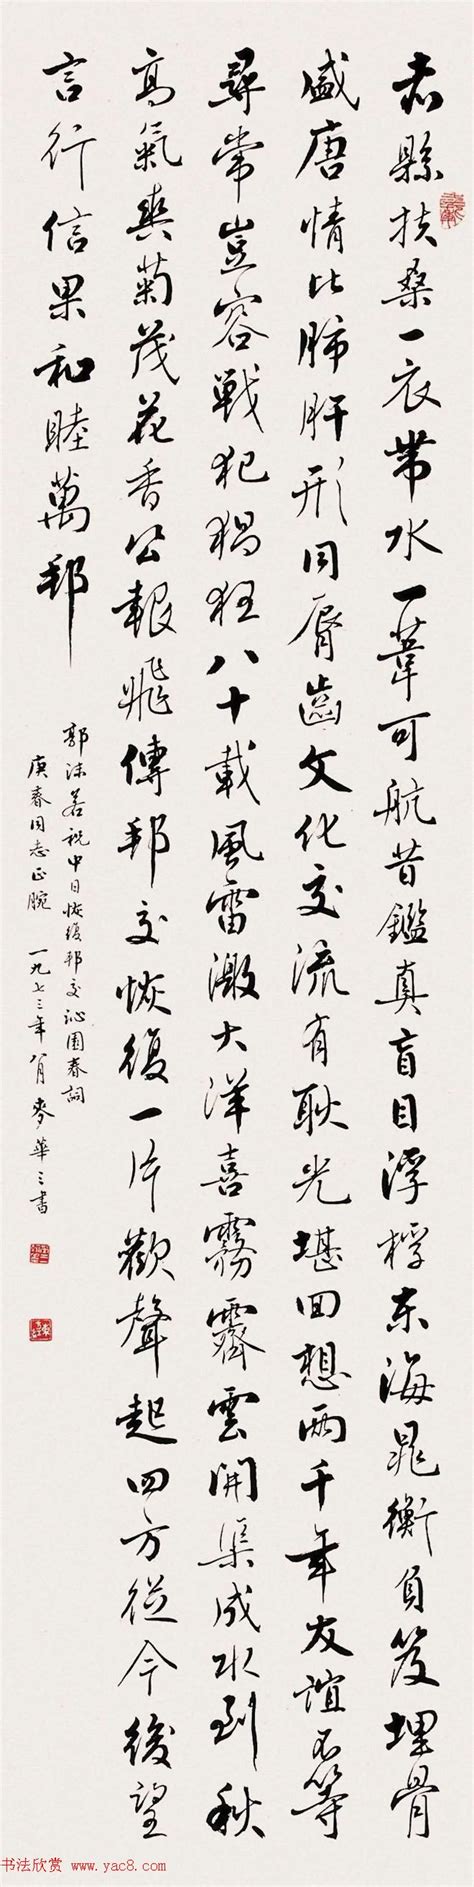 赤縣扶桑一衣帶水一葦可航昔鑑真盲目浮桴東海晁衡負笈埋骨
盛唐情比肺肝形同脣齒文化交流有耿光堪回想兩千年友誼不等
尋常豈容戰犯猖狂八十載風雷激大洋喜霧霽雲開渠成水到秋
高氣爽菊茂花香公報飛傳邦交恢復一片歡聲起四方從今後望
言行信果和睦萬邦
郭沫若祝中日恢復邦交沁園春詞
庚春同志正腕 一九七三年八月麥華三書
书法欣赏 www.yac8.com